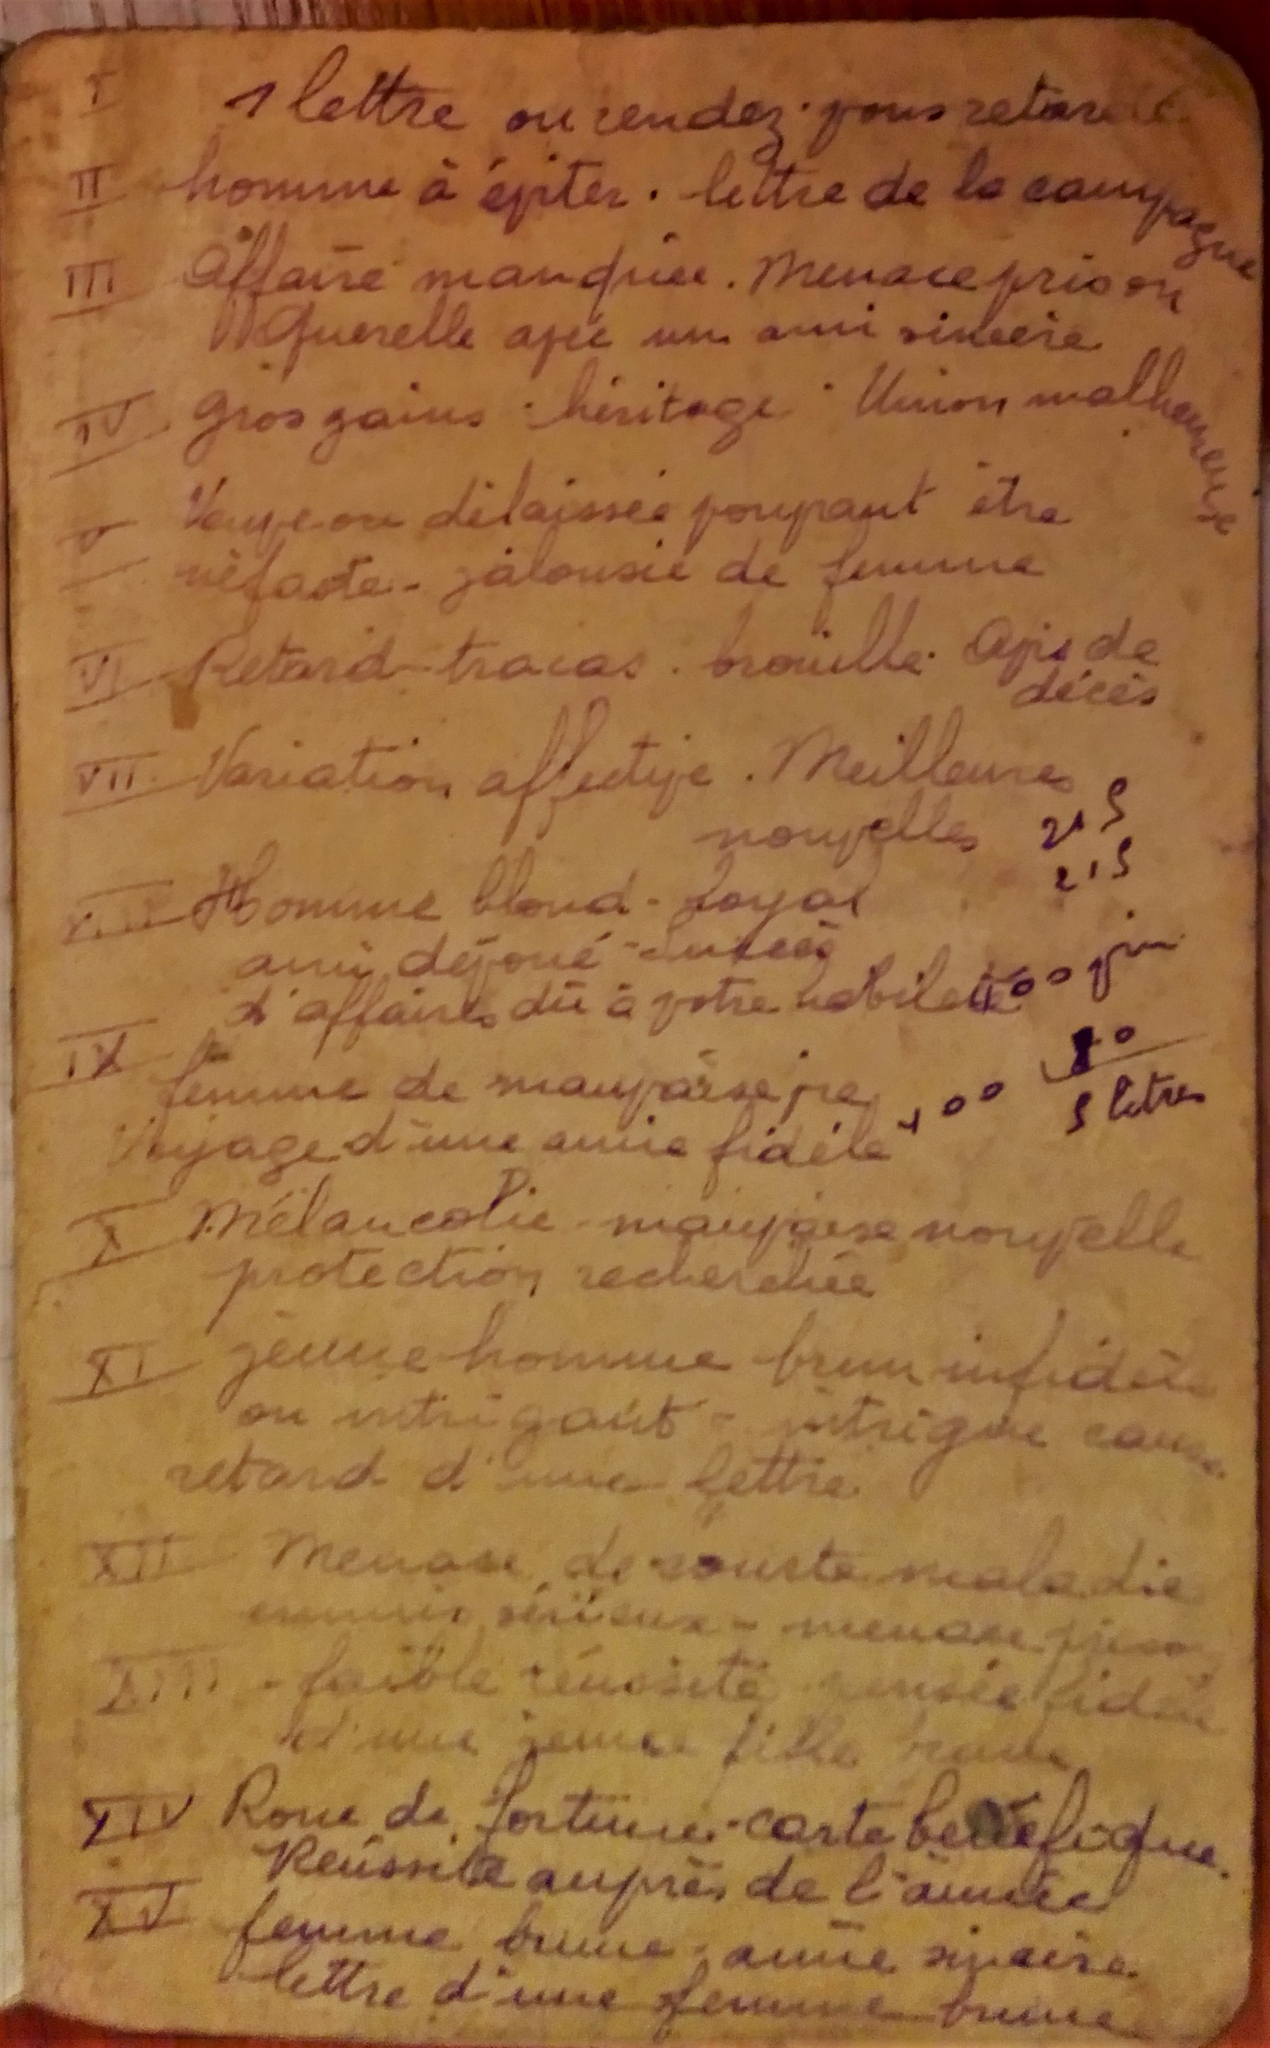 I 1 lettre ou rendez-vous retardé
II homme à éviter. lettre de la campagne
III Affaire manquée. Menace prison
Querelle avec un ami sincère
IV gros gains. héritage. Union malheureuse
V Veuve ou délaissée pouvant être
néfaste - jalousie de femme
VI Retard - tracas. brouille. Avis de
décès
VII Variation affective. Meilleures
nouvelles 215
215
VIII Homme blond - loyal
ami dévoué - Succès
d'affaires dû à votre habileté 400 vin
IX 80
femme de mauvaise vie 100 5 litres
Voyage d'une amie fidèle
X Mélancolie - mauvaise nouvelle
protection recherchée
XI jeune homme brun infidèle
ou intrigant - intrigue cause
retard d'une lettre
XII Menace de courte maladie
ennuis sérieux - menace prison
XIII - faible réussite pensée fidèle
d'une jeune fille brune
XIV Roue de fortune - carte bénéfique.
Réussite auprès de l'aimée
XV femme brune - amie sincère
lettre d'une femme brune